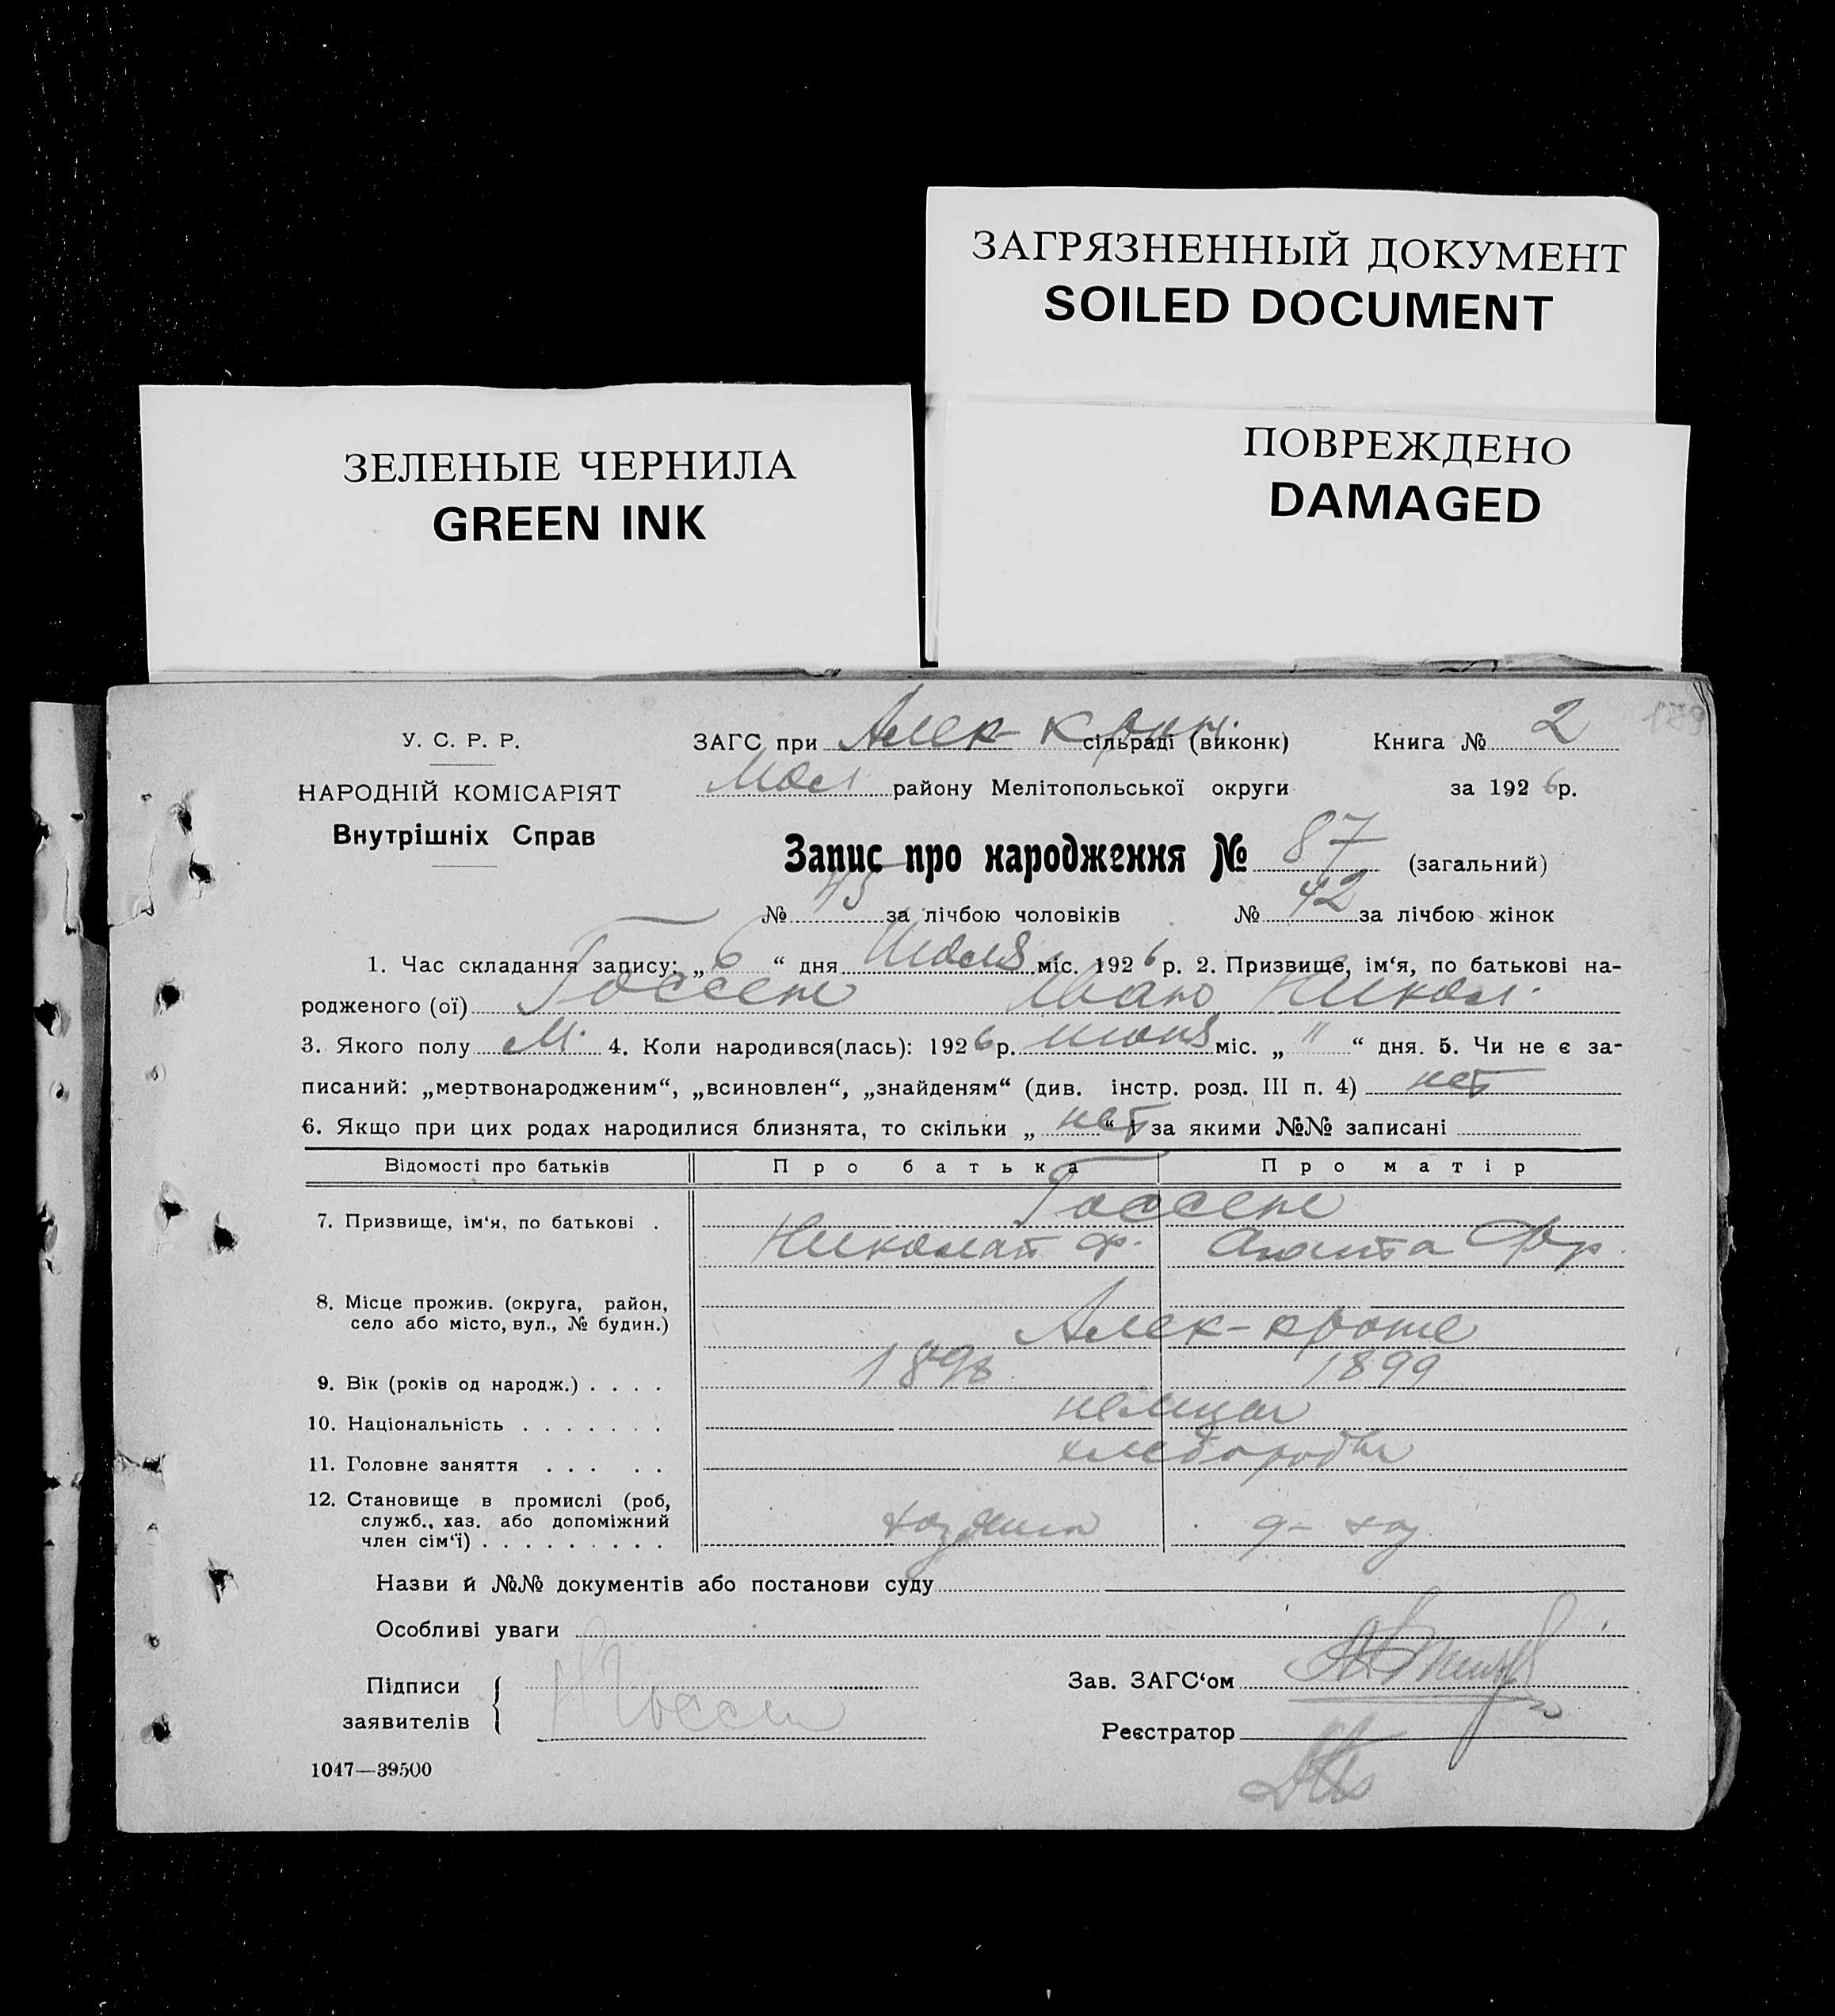 ЗАГРЯЗНЕННЫЙ ДОКУМЕНТ
SOILED DOCUMENT
ЗЕЛЕНЫЕ ЧЕРНИЛА
GREEN INK
ПОВРЕЖДЕНО
DAMAGED
У. С. Р. Р.
НАРОДНІЙ КОМІСАРІЯТ
Внутрішніх Справ
ЗАГС при Алек-Крон. сільраді (виконк) Книга № 2
Мол району Мелітопольської округи за 1926 р.
Запис про народження № 87 (загальний)
№ 45 за лічбою чоловіків № 42 за лічбою жінок
1. Час складання запису: „6“ дня Июля міс. 1926 р. 2. Призвище, ім‘я, по батькові на-
родженого (ої) Госсен Иван Никол.
3. Якого полу М. 4. Коли народився(лась): 1926 р. июня міс. „ “ дня. 5. Чи не є за-
писаний: „мертвонародженим“, „всиновлен“, „знайденям“ (див. інстр. розд. III п. 4) нет
6. Якщо при цих родах народилися близнята, то скільки „нет“ і за якими №№ записані
Відомості про батьків Про батька Про матір
7. Призвище, ім‘я, по батькові . Госсен
Николай Ф. Аганта Фр.
8. Місце прожив. (округа, район,
село або місто, вул., № будин.) Алек-кроне
9. Вік (років од народж.) . . . . 1898 1899
10. Національність . . . . . . . немцы
11. Головне заняття . . . . . хлебороды
12. Становище в промислі (роб,
служб., хаз. або допоміжний
член сім‘ї) . . . . . . . . . хозяин д- хоз
Назви й №№ документів або постанови суду
Особливі уваги
Підписи
заявителів Н Госсен
Зав. ЗАГС‘ом
Реєстратор
1047—39500